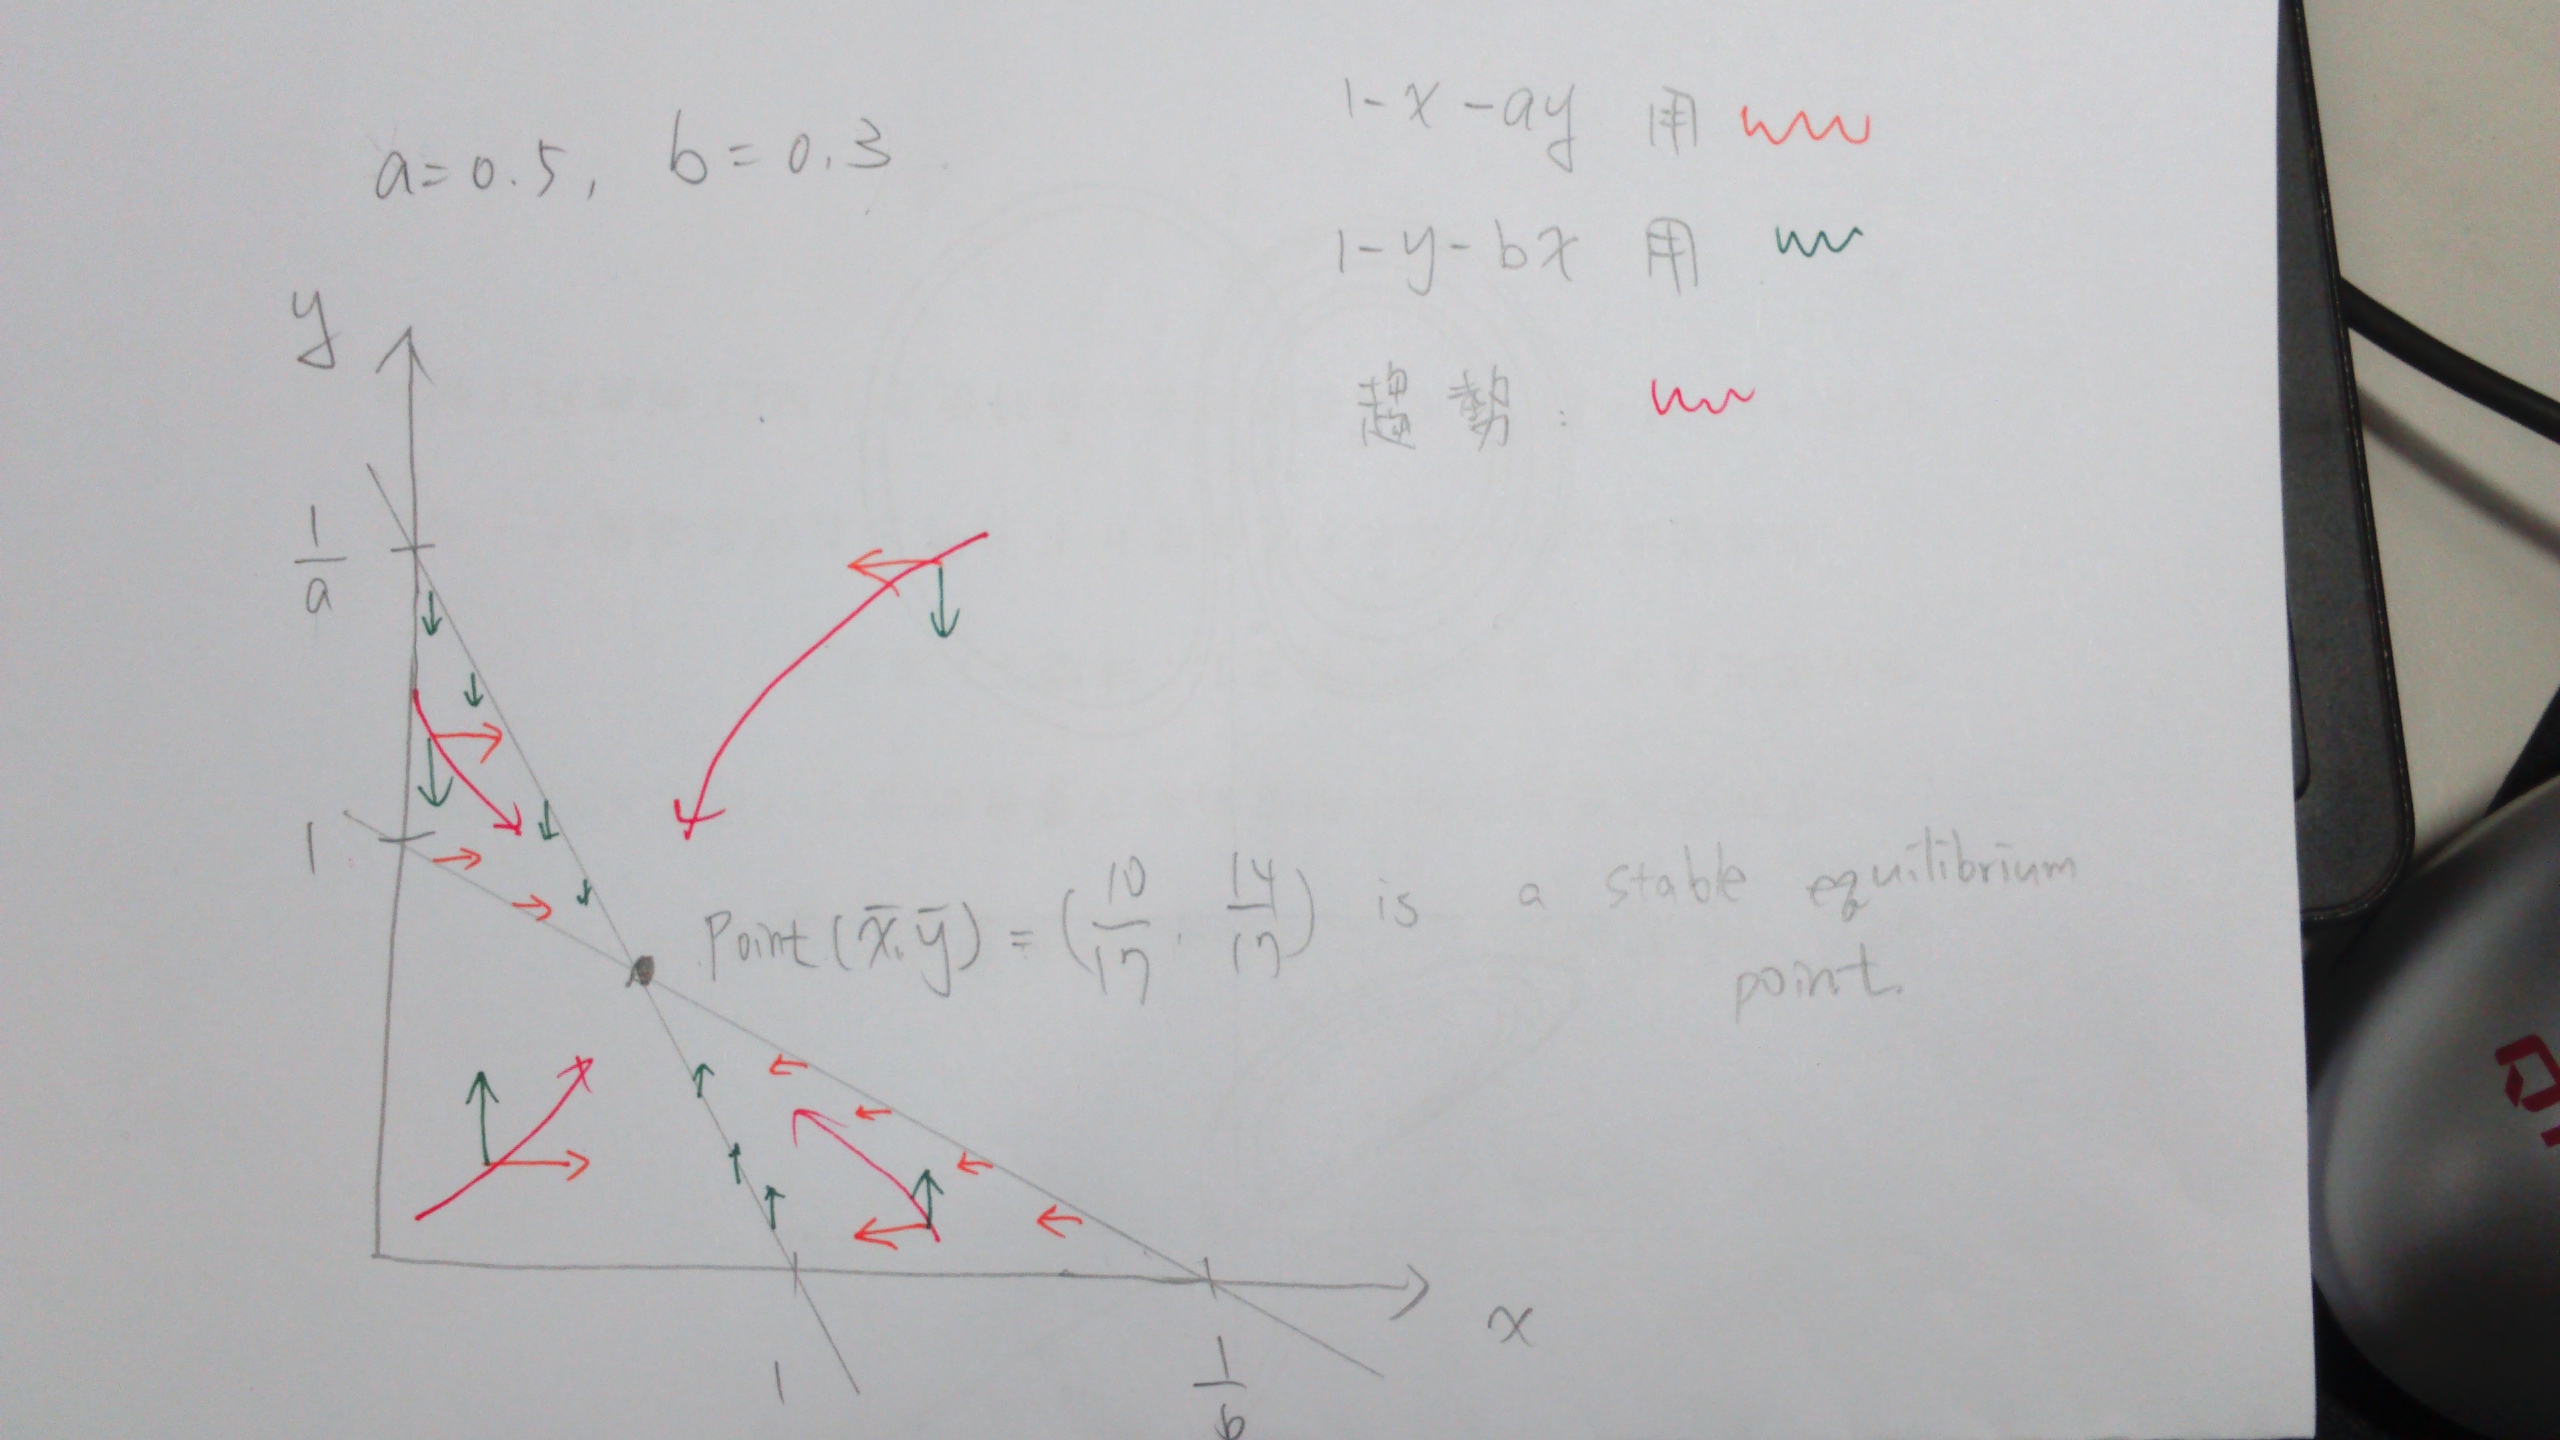 a=0.5, b=0.3
1-x-ay 用
1-y-bx 用
趨勢:
y
1/a
1
Point(x̄,ȳ) = (10/17, 14/17) is a stable equilibrium
point.
x
1
1/b